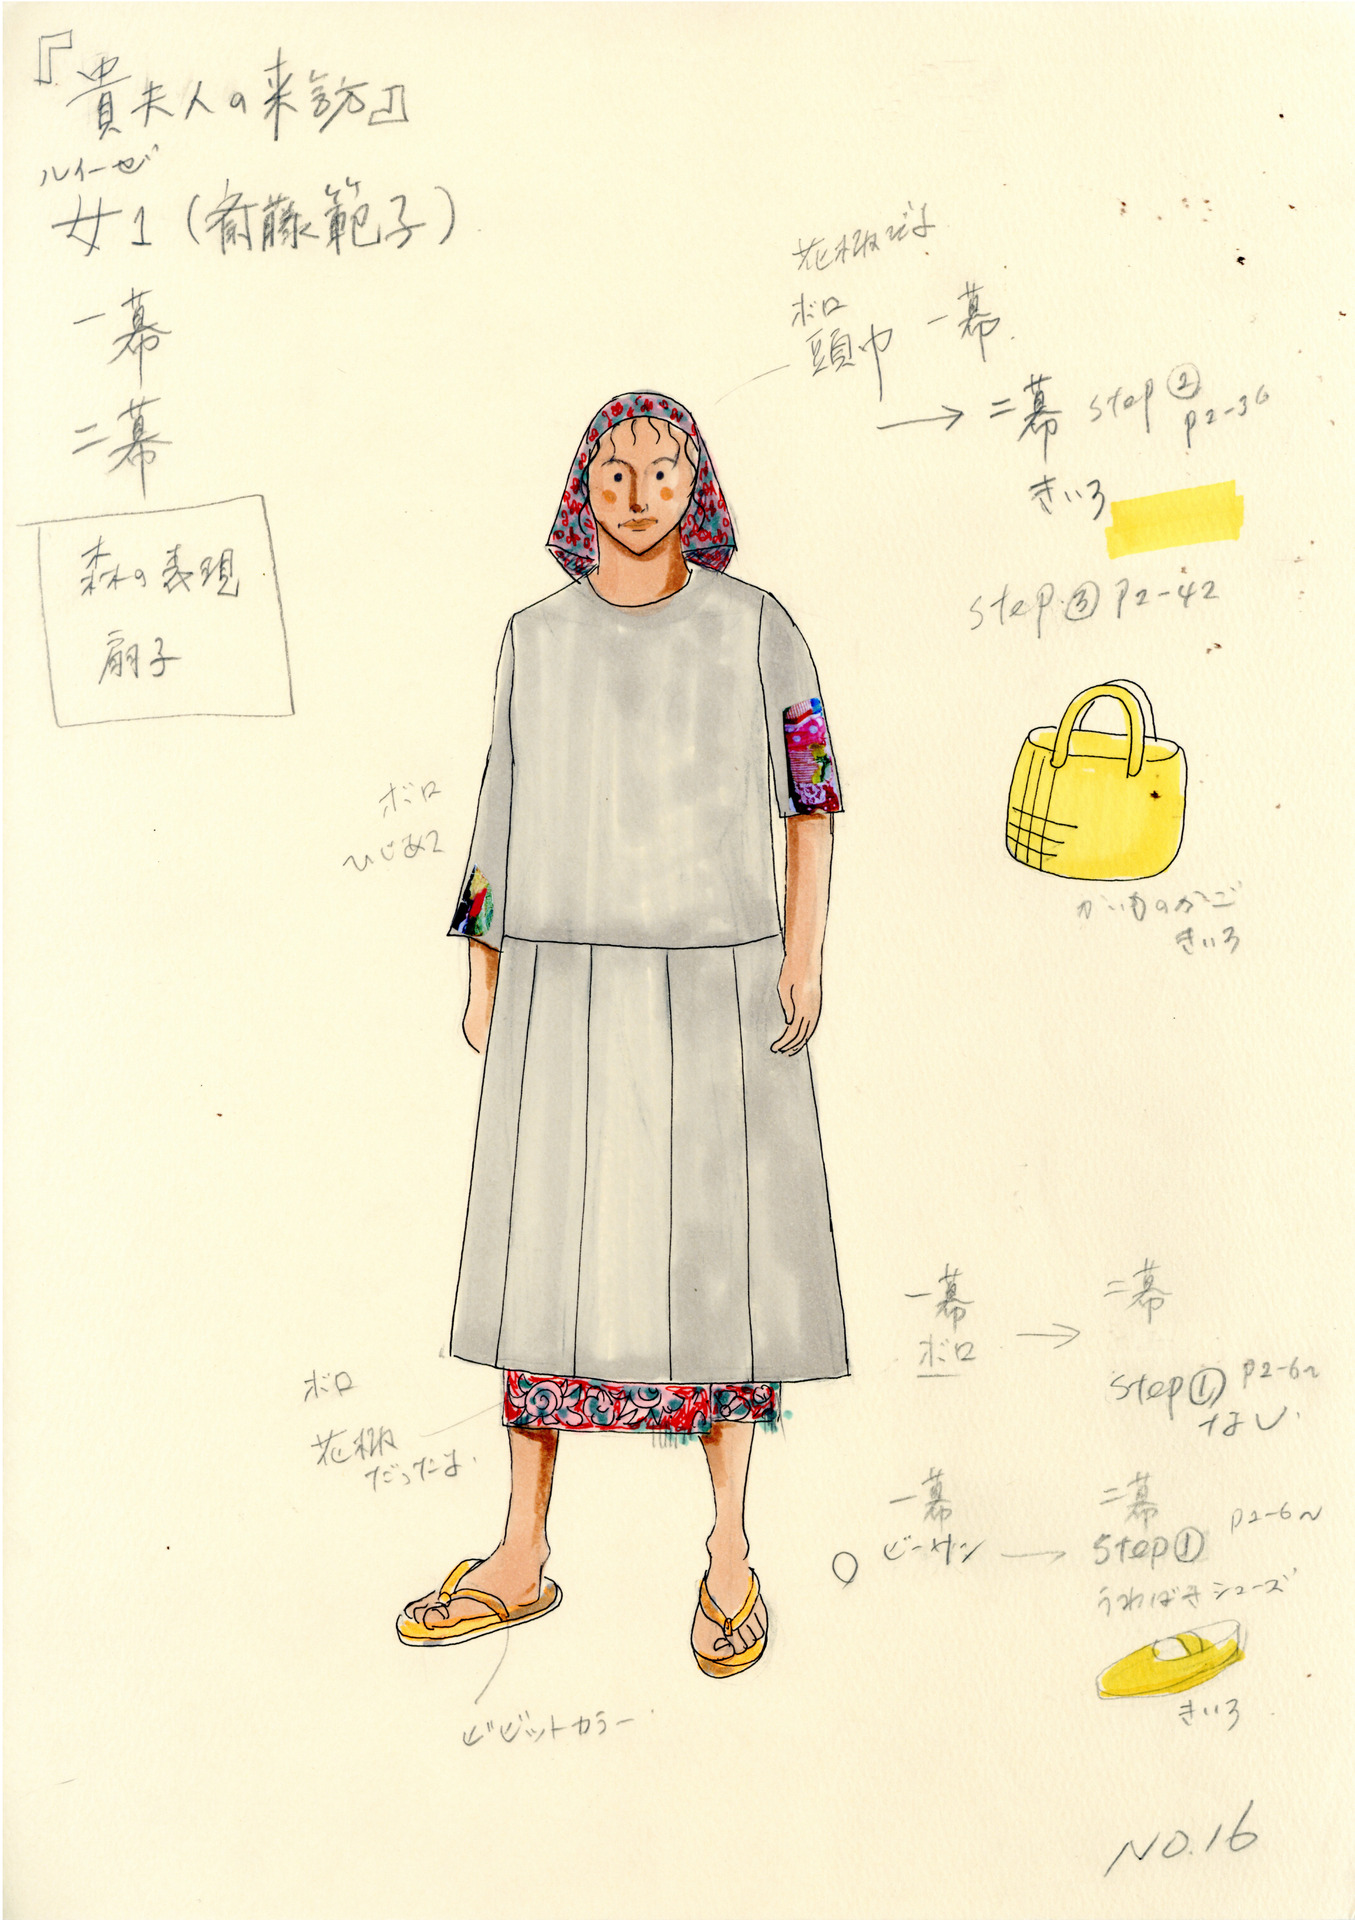 『貴夫人の来訪』
ルイーゼ
女1(斎藤範子)
一幕
二幕
森の表現
扇子
花柄だよ
ボロ
頭巾 一幕
→ 二幕 step② P2-36
きいろ
step③ P2-42
かいものかご
きいろ
ボロ
ひじあて
一幕 → 二幕
ボロ
step① P2-6~
なし
ボロ
花柄
だったよ
一幕 二幕
ビーサン → step① P2-6~
うわばきシューズ
きいろ
ビビットカラー
NO.16